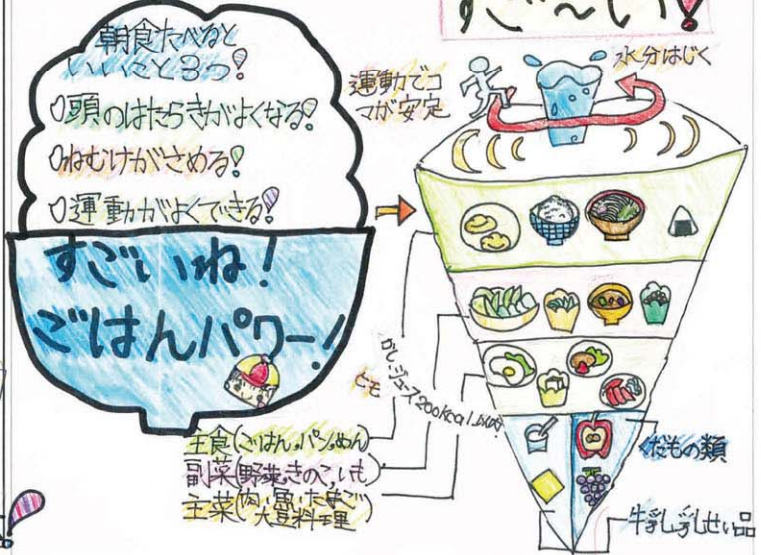 すご〜い!
朝食たべると
いいこと3つ!
頭のはたらきがよくなる!
ねむけがさめる!
運動がよくできる!
すごいね!
ごはんパワー!
運動でコ
マが安定
水分はじく
かし、ジュース200kcal
主食(ごはん、パン、めん)
副菜(野菜、きのこ、いも)
主菜(肉、魚、たまご
大豆料理)
くだもの類
牛乳、乳せい品